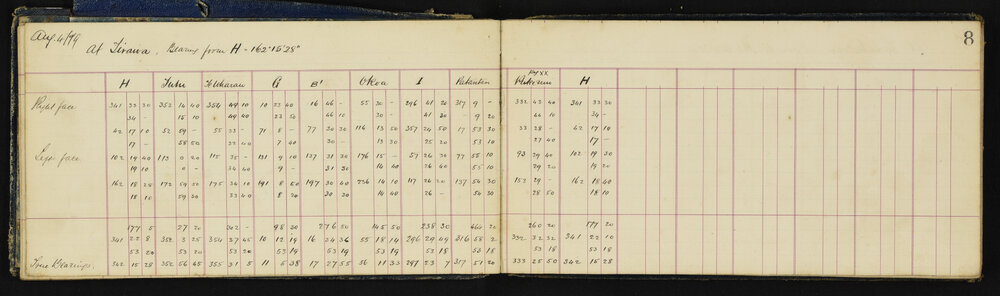 Aug. 4/99
8
At Tirawa, Bearing from H - 162° 15' 28"
H Tuhu Te Wharau G B' Okoa I XX
Pukenui H
Right face 341 33 30 352 14 40 354 49 10 10 23 40 16 46 - 55 30 - 296 41 20 317 9 - 332 43 40 341 33 30
34 - 15 10 49 40 23 50 46 10 30 - 41 30 9 20 44 10 34 -
42 17 10 52 59 - 55 33 - 71 8 - 77 30 30 116 13 50 357 24 50 17 53 30 33 28 - 42 17 10
17 - 58 50 32 40 7 40 30 - 13 30 25 20 53 10 27 40 17 -
Left face 102 19 40 113 0 20 115 35 - 131 9 10 137 31 30 176 15 - 57 26 30 77 55 10 93 29 40 102 19 30
19 10 0 - 34 40 9 - 31 30 14 40 26 40 55 10 29 20 19 20
162 18 28 172 59 30 175 34 10 191 8 50 197 30 40 236 14 10 117 26 20 137 54 30 153 29 - 162 18 40
18 10 59 30 33 40 8 20 30 30 14 40 26 - 54 30 28 50 18 10
177 5 27 20 302 - 98 30 276 50 145 50 238 30 464 20 260 20 177 20
341 22 8 352 3 25 354 37 45 10 12 19 16 34 36 55 18 14 296 29 49 316 58 2 332 32 32 341 22 10
53 20 53 20 53 20 53 19 53 19 53 19 53 18 53 18 53 18 53 18
True Bearings. 342 15 28 352 56 45 355 31 5 11 5 38 17 27 55 56 11 33 297 23 7 317 51 20 333 25 50 342 15 28